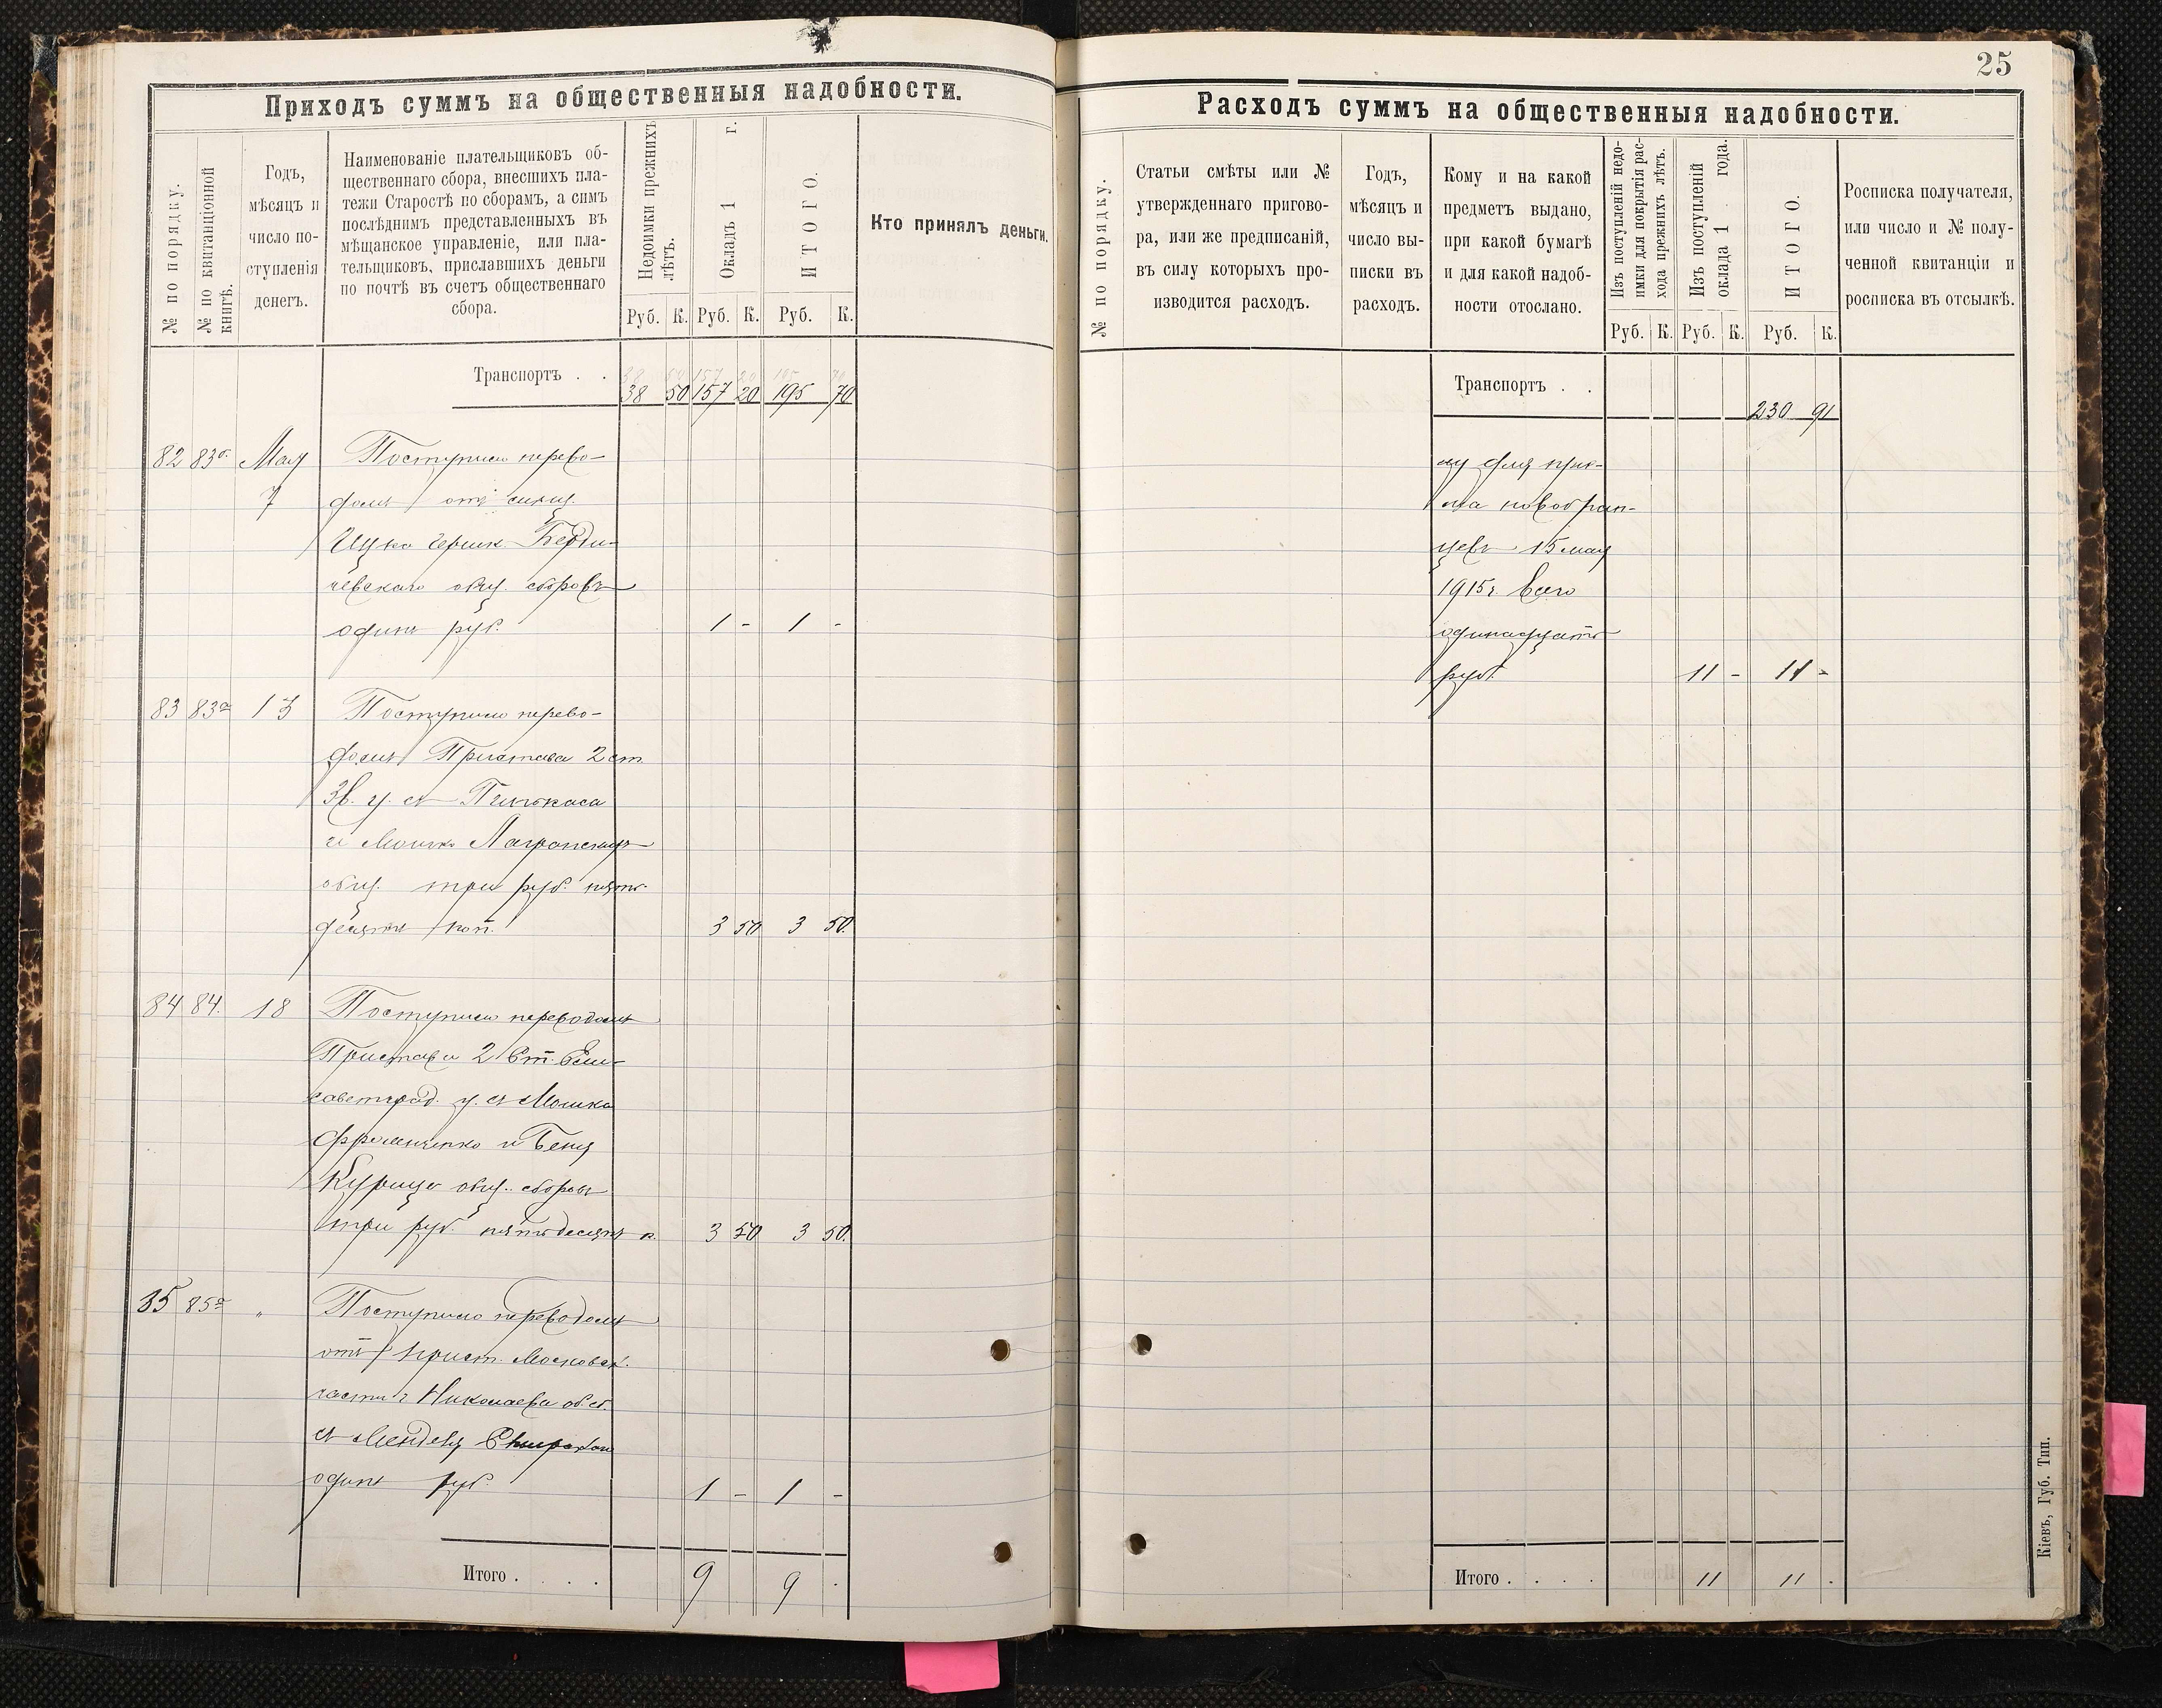 Приходъ суммъ на общественныя надобности.
№ по порядку.
№ по квитанціонной книгѣ.
Годъ,
мѣсяцъ и
число по-
ступленія
денегъ.
Наименованіе плательщиковъ об-
щественнаго сбора, внесшихъ пла-
тежи Старостѣ по сборамъ, а симъ
послѣднимъ представленныхъ въ
мѣщанское управленіе, или пла-
тельщиковъ, приславшихъ деньги
по почтѣ въ счетъ общественнаго
сбора.
Недоимки прежнихъ лѣтъ.
Окладъ 1 г.
ИТОГО.
Кто принялъ деньги.
Руб. К. Руб. К. Руб. К.
Транспортъ . . 38 50 157 20 195 70
82 83 Мая Поступило перево-
7 домъ отъ
Ицко Бердич-
чевскаго общ. сборовъ
одинъ руб. 1 - 1 -
83 83а 13 Поступило перево-
домъ Пристава 2 ст.
Зв. у. съ Пинькаса
и Мошко
общ. три руб. пять-
десятъ коп. 3 50 3 50.
84 84. 18 Поступило переводомъ
Пристава 2 Ст. Ели-
саветград. у. съ Мошка
и Беня
общ. сборовъ
три руб. пятьдесятъ к. 3 50 3 50.
85 85а " Поступило переводомъ
отъ прист. Московск.
части г. Николаева об. сб.
съ Менделя
одинъ руб. 1 - 1 -
Итого . . . . 9 9 .
25
Расходъ суммъ на общественныя надобности.
№ по порядку.
Статьи смѣты или №
утвержденнаго пригово-
ра, или же предписаній,
въ силу которыхъ про-
изводится расходъ.
Годъ,
мѣсяцъ и
число вы-
писки въ
расходъ.
Кому и на какой
предметъ выдано,
при какой бумагѣ
и для какой надоб-
ности отослано.
Изъ поступленій недо-
имки для покрытія рас-
хода прежнихъ лѣтъ.
Изъ поступленій
оклада 1 года.
ИТОГО.
Росписка получателя,
или число и № полу-
ченной квитанціи и
росписка въ отсылкѣ.
Руб. К. Руб. К. Руб. К.
Транспортъ . . 230 91
му для прие-
ма новобран-
цевъ 15 мая
1915 г. всего
одинадцать
руб. 11 - 11 -
Итого . . . . 11 11 .
Кіевъ, Губ. Тип.